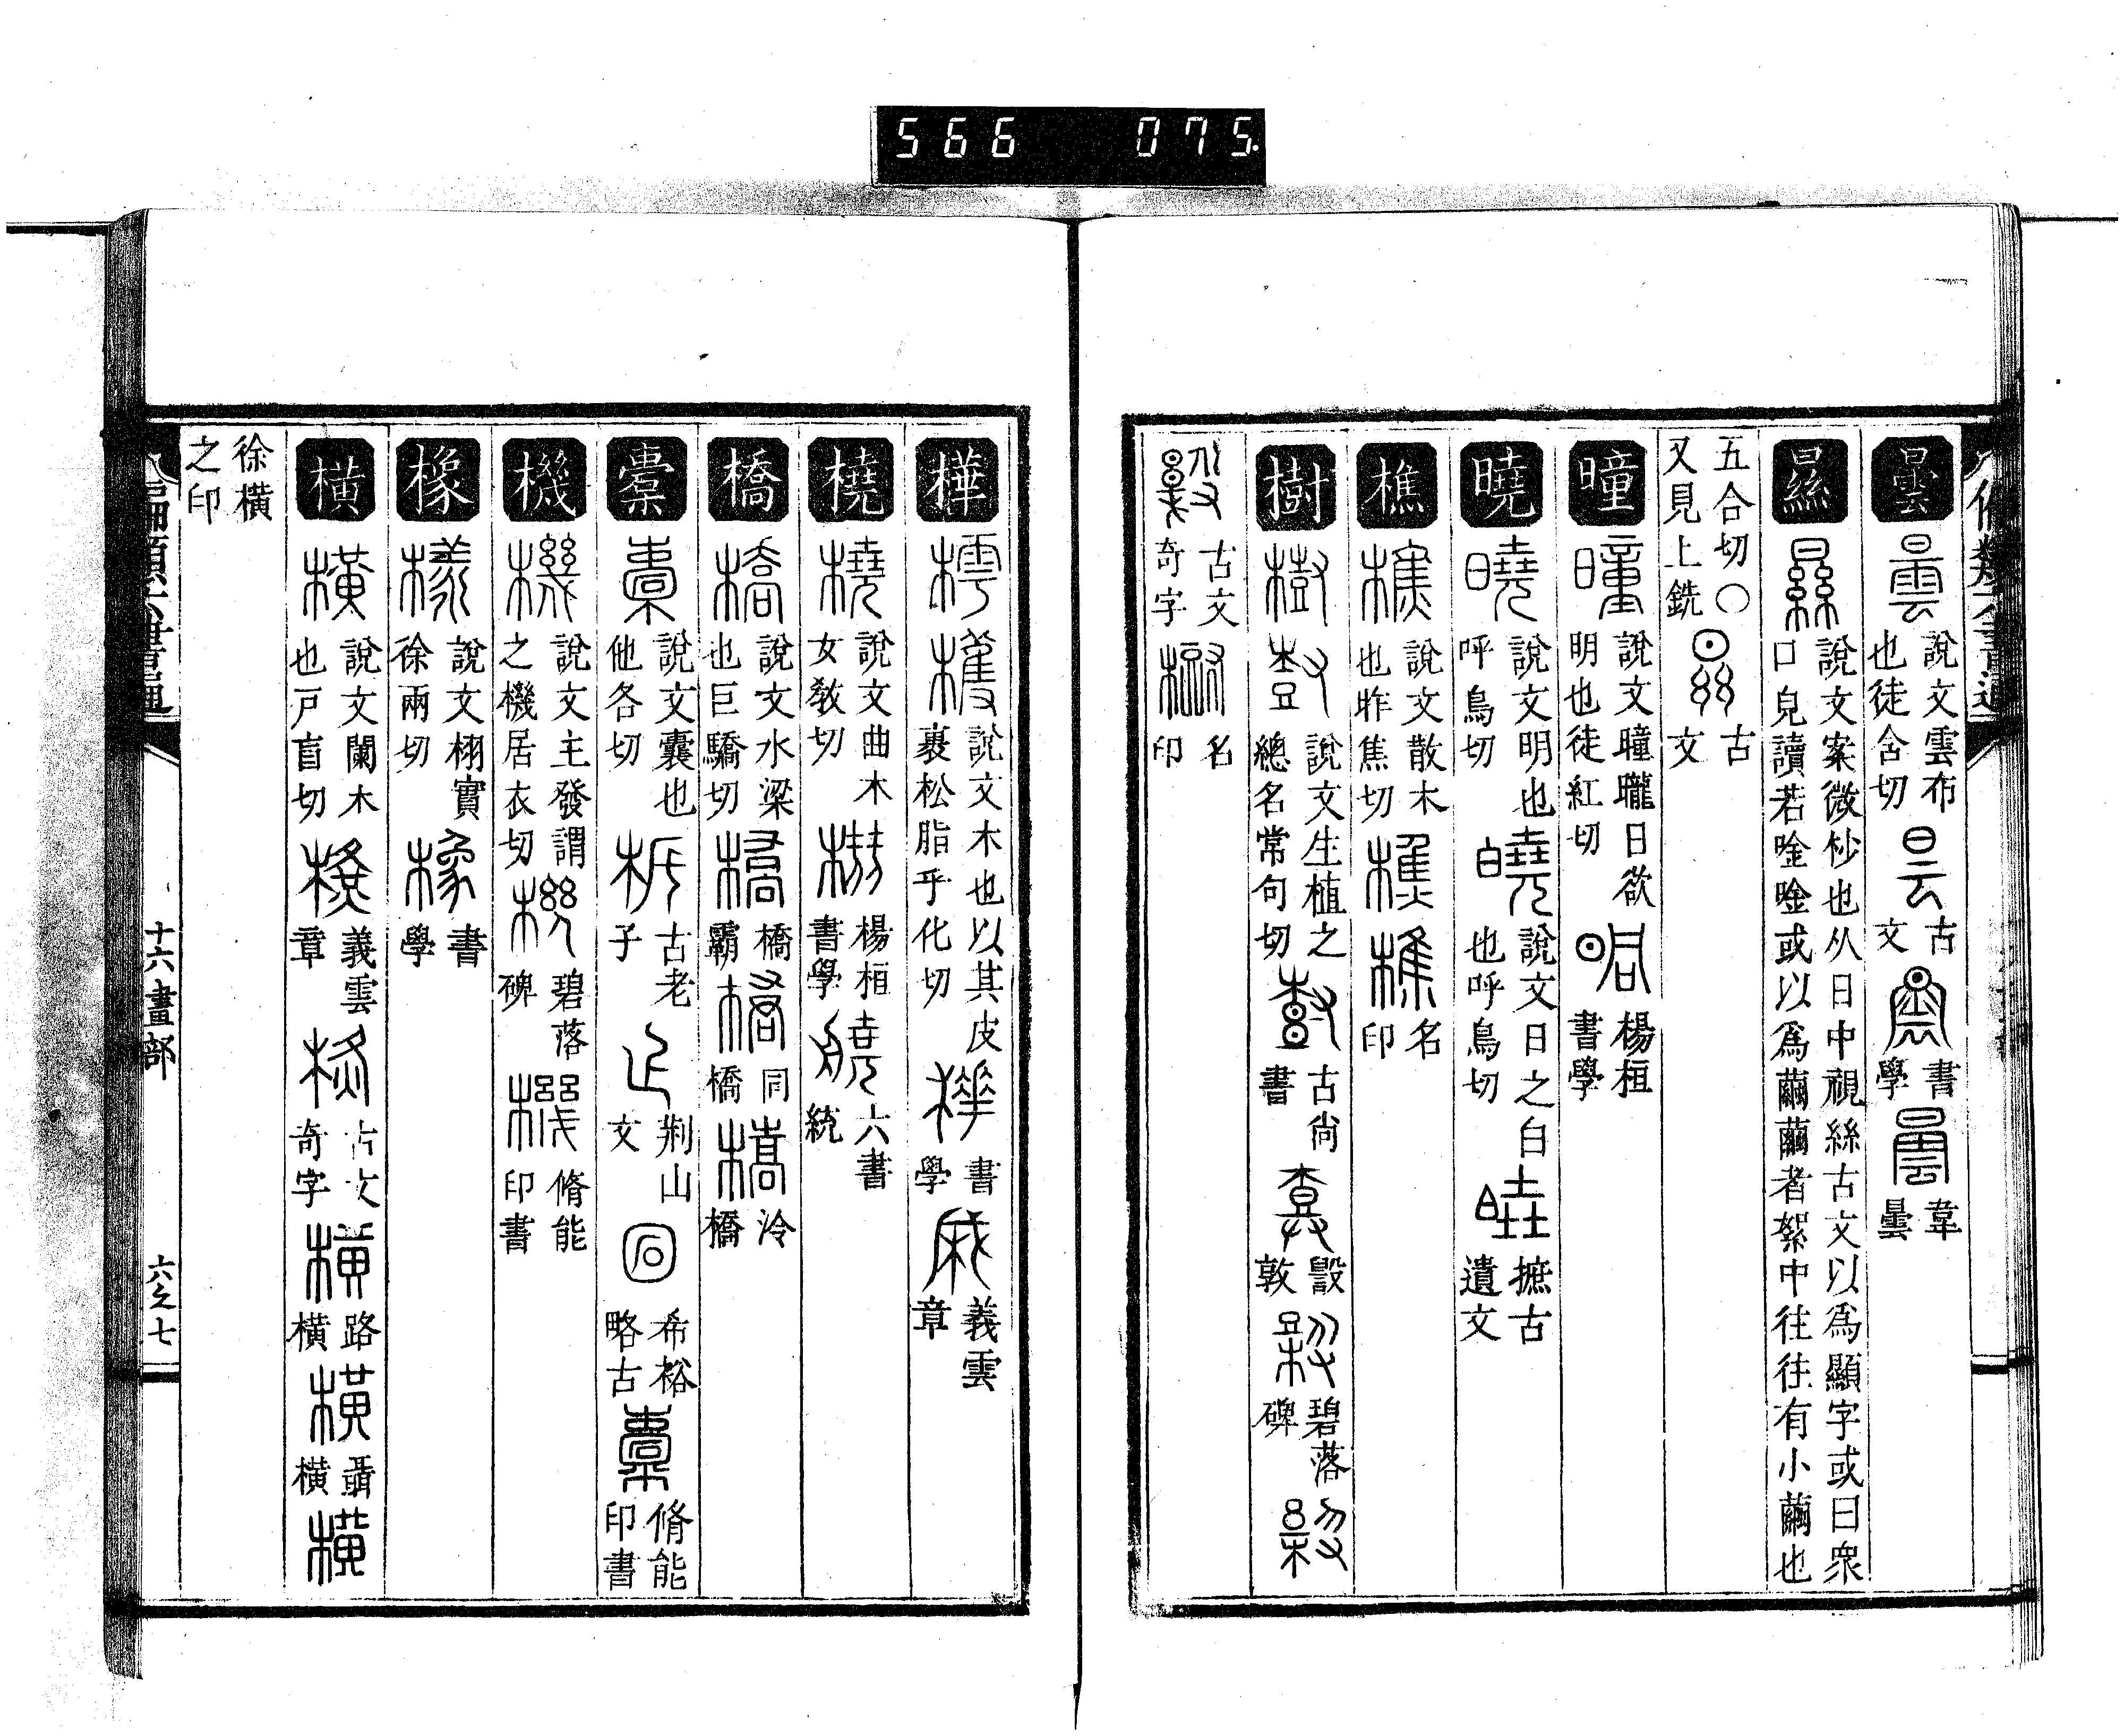 566 075
曇 說文雲布也徒含切 古文 書學 韋曇
㬎 說文案微杪也从日中視絲古文以爲顯字或曰衆口皃讀若唫唫或以爲繭繭者絮中往往有小繭也
五合切〇又見上銑 古文
曈 說文曈曨日欲明也徒紅切 楊桓書學
曉 說文明也呼鳥切 說文日之白也呼鳥切 摭古遺文
樵 說文散木也昨焦切 名印
樹 說文生植之總名常句切 古尚書 敦 碧落碑
古文奇字 名印
樺 說文木也以其皮裹松脂乎化切 書學 義雲章
橈 說文曲木女敎切 楊桓書學 六書統
橋 說文水梁也巨驕切 橋霸 同橋 泠橋
橐 說文囊也他各切 古老子 荆山文 希裕略古 脩能印書
機 說文主發謂之機居衣切 碧落碑 脩能印書
橡 說文栩實徐兩切 書學
橫 說文闌木也戸盲切 義雲章 古文奇字 路橫 聶橫
徐橫之印
十六畫部
六之七